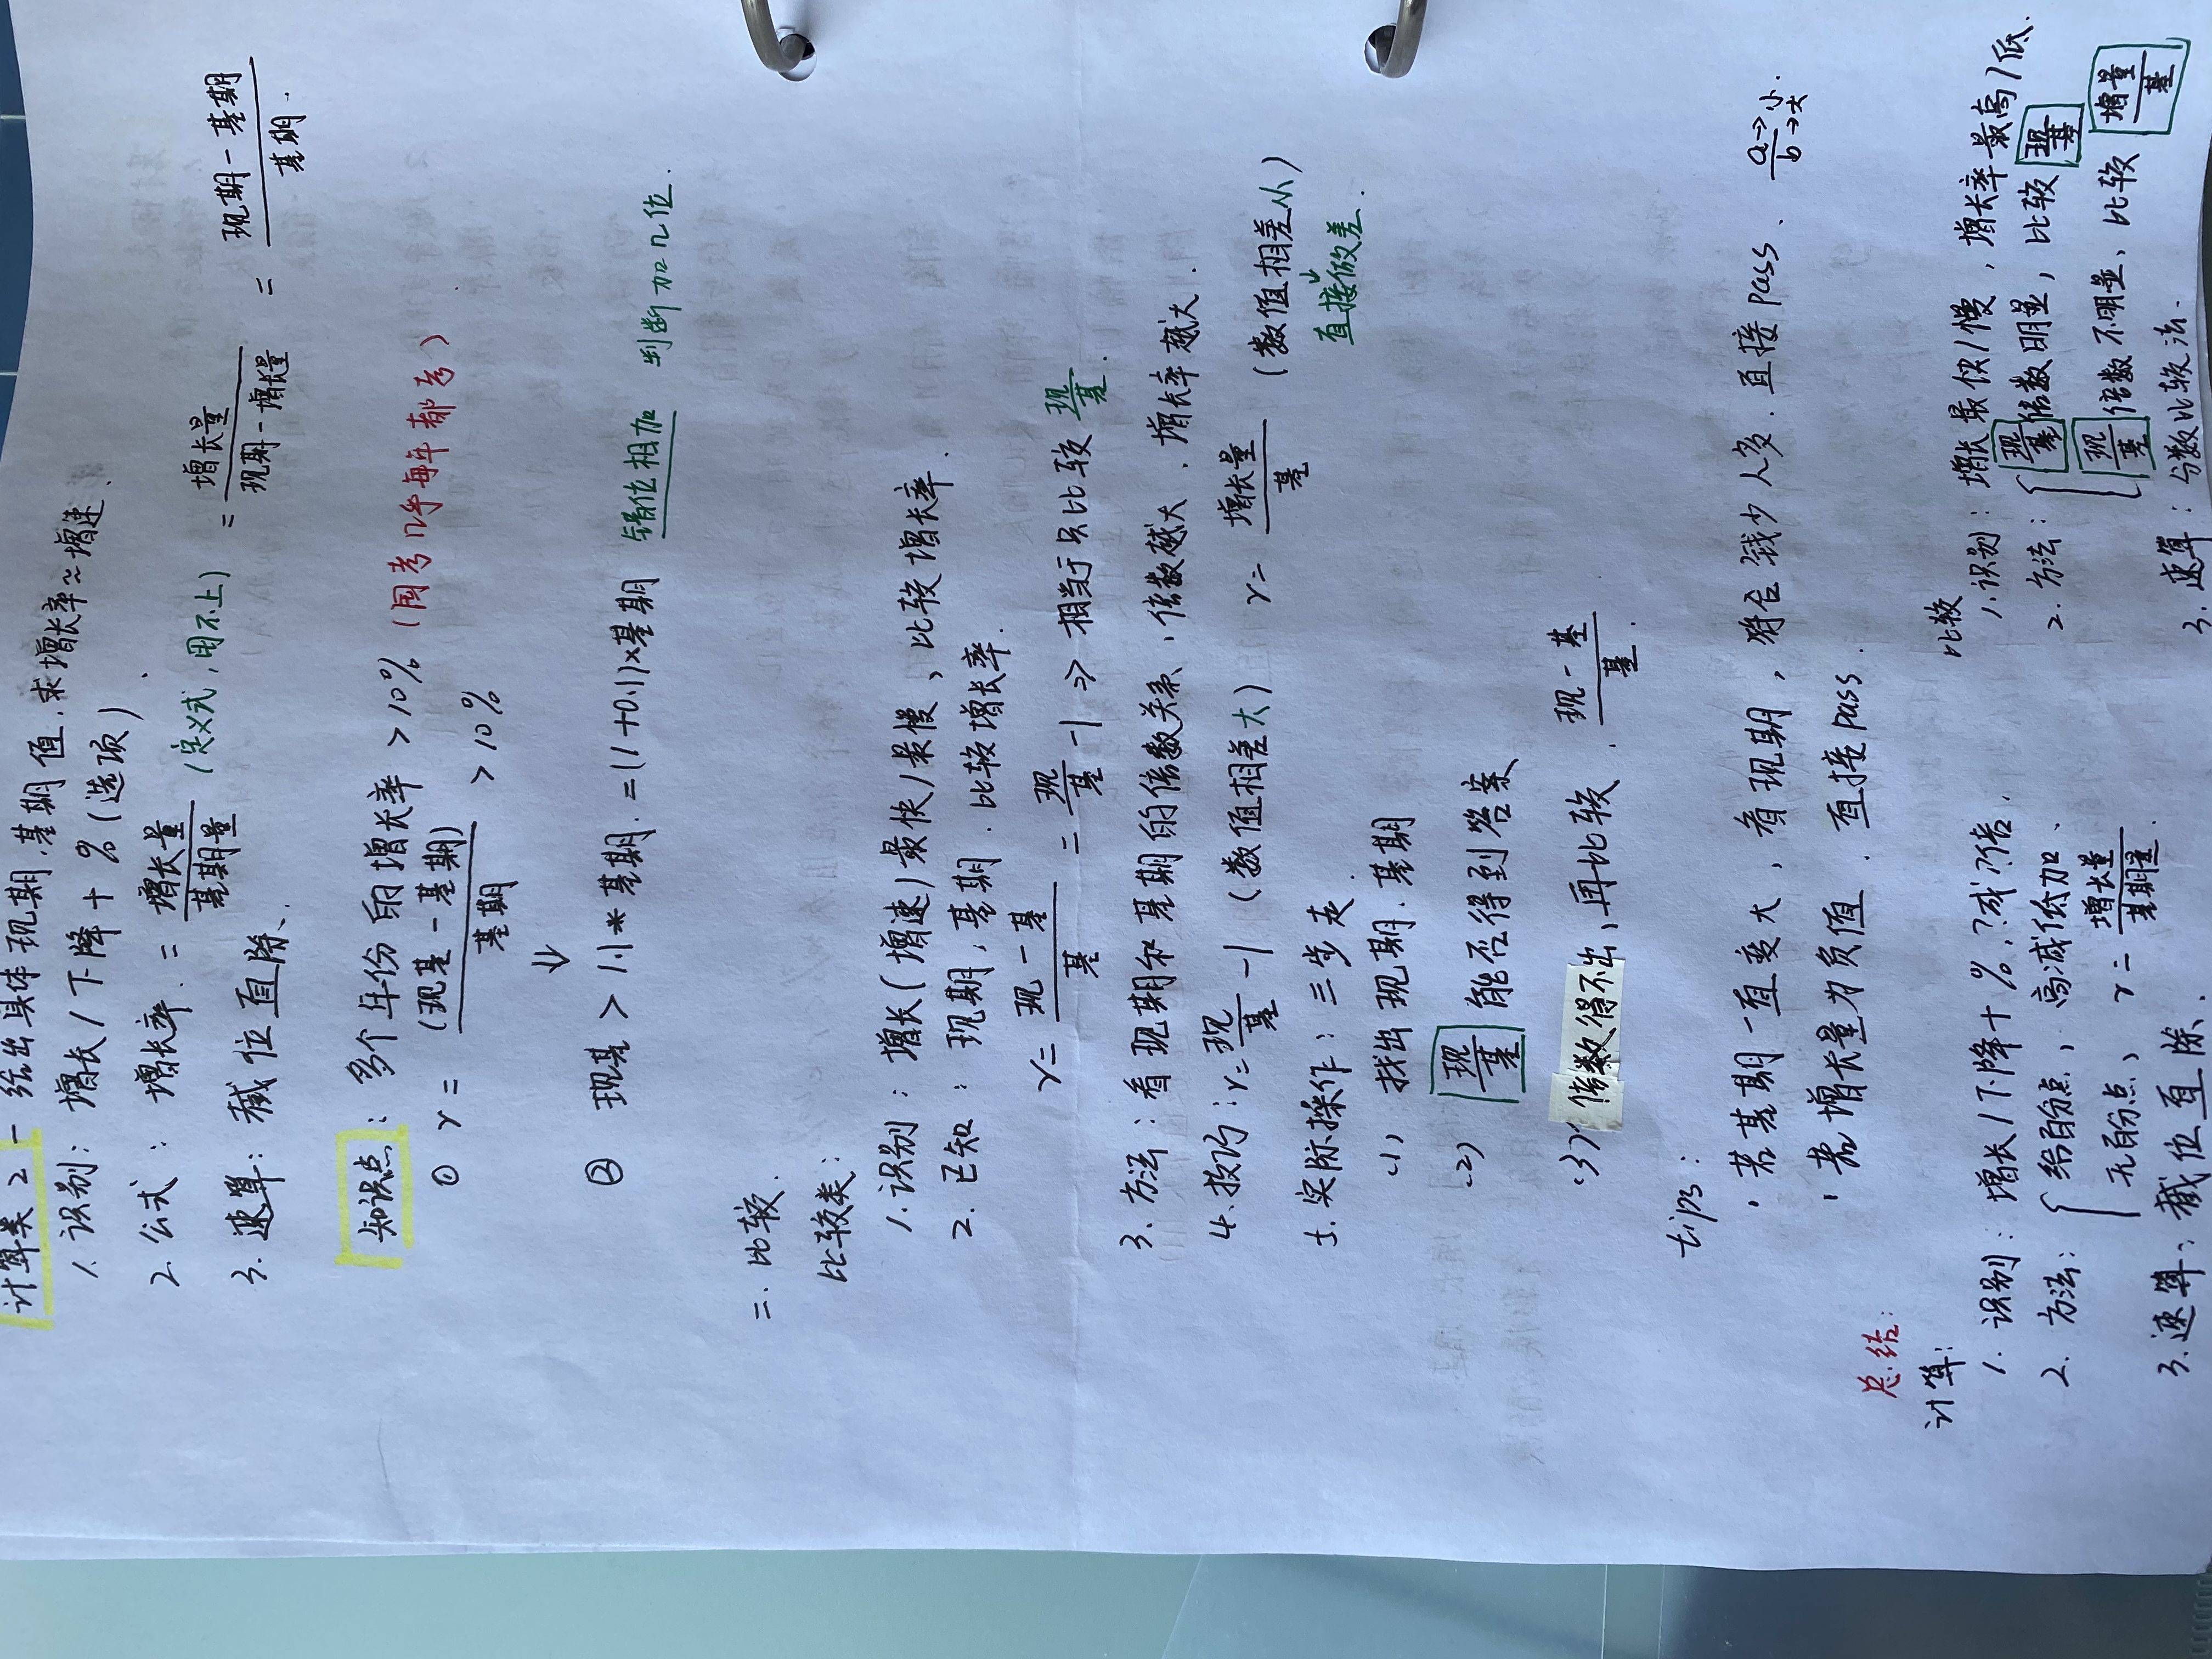 计算类2 — 给出具体现期,基期值,求增长率≈增速、
1. 识别: 增长/下降+%(选项)、
2. 公式: 增长率 = 增长量/基期量 (定义式,用不上) = 增长量/现期-增长量 = 现期-基期/基期.
3. 速算: 截位直除、
知识点: 多个年份的增长率 > 10% (国考几乎每年都考)
① r = (现基-基期)/基期 > 10%
⇓
② 现基 > 1.1*基期. =(1+0.1)×基期 错位相加 判断加几位.
二. 比较.
比较类:
1. 识别: 增长(增速)最快/最慢、比较增长率.
2. 已知: 现期,基期. 比较增长率.
r = 现-基/基 = 现/基 -1 => 相当于只比较 现/基.
3. 方法: 看现期和基期的倍数关系、倍数越大、增长率越大.
4. 技巧: r = 现/基 -1 (数值相差大) r = 增长量/基 (数值相差小)
直接做差.
5. 实际操作: 三步走.
(1) 找出现期.基期
(2) 现/基 能否得到答案
(3) 倍数得不出、再比较. 现-基/基.
tips:
· 若基期一直变大, 看现期, 符合钱少人多. 直接Pass、 a→小/b→大.
· 若增长量为负值. 直接pass.
总结:
计算:
1. 识别: 增长/下降+%,?成/?倍.
2. 方法: { 给百分点, 高减低加、
无百分点、 r = 增长量/基期量.
3. 速算: 截位直除、
比较
1. 识别: 增长最快/慢, 增长率最高/低.
2. 方法: { 现/基 倍数明显, 比较 现/基
现/基 倍数不明显、比较 增量/基
3. 速算: 分数比较法.